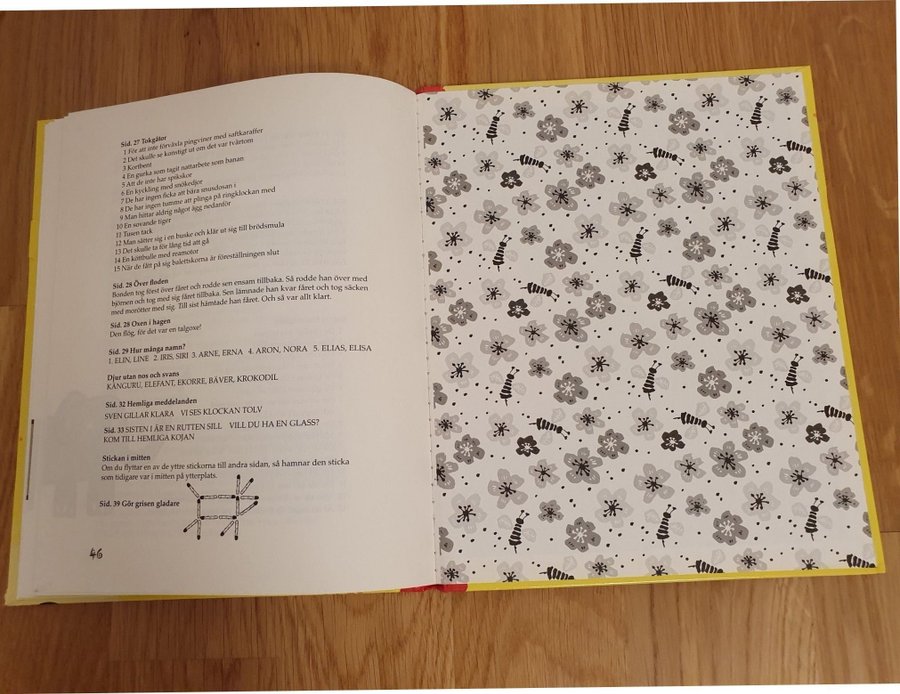 Sid. 27 Tokgåtor
1 För att inte förväxla pingviner med saftkaraffer
2 Det skulle se konstigt ut om det var tvärtom
3 Kortbent
4 En gurka som tagit nattarbete som banan
5 Att de inte har spikskor
6 En kyckling med snökedjor
7 De har ingen ficka att bära snusdosan i
8 De har ingen tumme att plinga på ringklockan med
9 Man hittar aldrig något ägg nedanför
10 En sovande tiger
11 Tusen tack
12 Man sätter sig i en buske och klär ut sig till brödsmula
13 Det skulle ta för lång tid att gå
14 En köttbulle med reamotor
15 När de fått på sig balettskorna är föreställningen slut
Sid. 28 Över floden
Bonden tog först över fåret och rodde sen ensam tillbaka. Så rodde han över med
björnen och tog med sig fåret tillbaka. Sen lämnade han kvar fåret och tog säcken
med morötter med sig. Till sist hämtade han fåret. Och så var allt klart.
Sid. 28 Oxen i hagen
Den flög, för det var en talgoxe!
Sid. 29 Hur många namn?
1. ELIN, LINE 2. IRIS, SIRI 3. ARNE, ERNA 4. ARON, NORA 5. ELIAS, ELISA
Djur utan nos och svans
KÄNGURU, ELEFANT, EKORRE, BÄVER, KROKODIL
Sid. 32 Hemliga meddelanden
SVEN GILLAR KLARA VI SES KLOCKAN TOLV
Sid. 33 SISTEN I ÄR EN RUTTEN SILL VILL DU HA EN GLASS?
KOM TILL HEMLIGA KOJAN
Stickan i mitten
Om du flyttar en av de yttre stickorna till andra sidan, så hamnar den sticka
som tidigare var i mitten på ytterplats.
Sid. 39 Gör grisen gladare
46